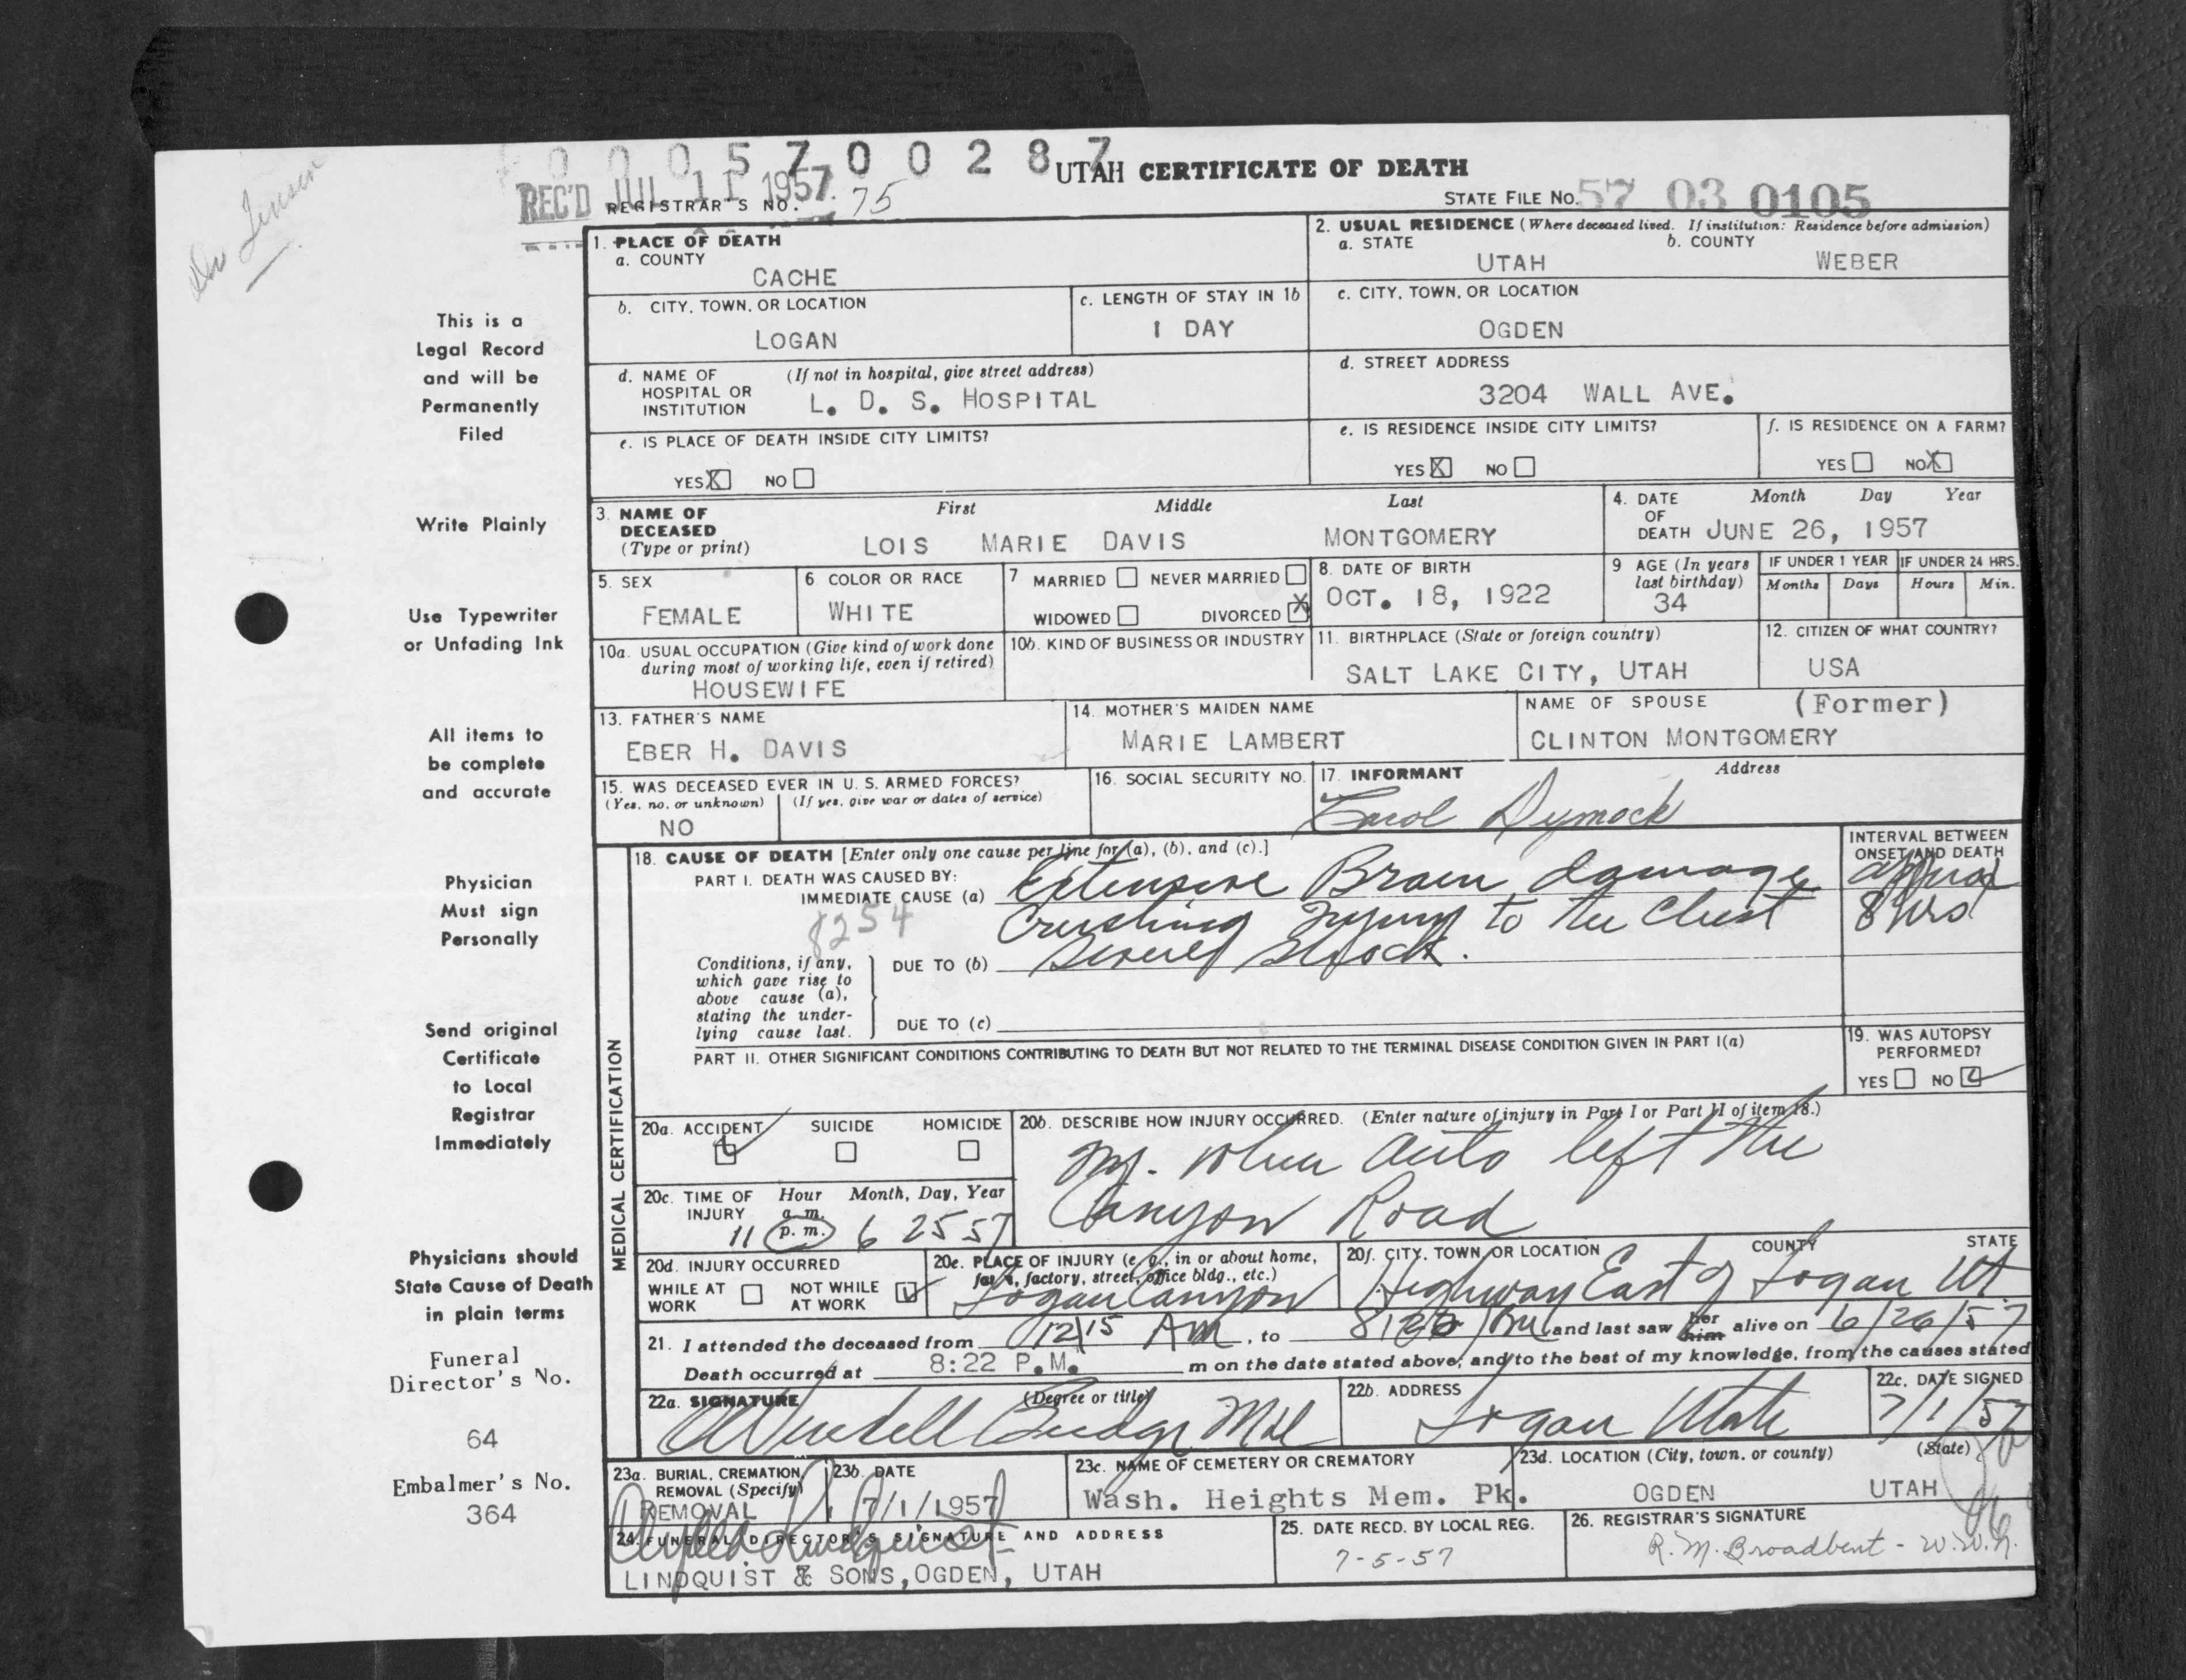 0 0 0 5 7 0 0 2 8 7
UTAH CERTIFICATE OF DEATH
REC'D JUL 11 1957
REGISTRAR'S NO. 75
STATE FILE NO. 57 03 0105
1. PLACE OF DEATH
a. COUNTY
CACHE
2. USUAL RESIDENCE (Where deceased lived. If institution: Residence before admission)
a. STATE b. COUNTY
UTAH WEBER
b. CITY, TOWN, OR LOCATION
LOGAN
c. LENGTH OF STAY IN 1b
1 DAY
c. CITY, TOWN, OR LOCATION
OGDEN
d. NAME OF HOSPITAL OR INSTITUTION (If not in hospital, give street address)
L. D. S. HOSPITAL
d. STREET ADDRESS
3204 WALL AVE.
e. IS PLACE OF DEATH INSIDE CITY LIMITS?
YES X NO
e. IS RESIDENCE INSIDE CITY LIMITS?
YES X NO
f. IS RESIDENCE ON A FARM?
YES NO X
3. NAME OF DECEASED (Type or print)
First Middle Last
LOIS MARIE DAVIS MONTGOMERY
4. DATE OF DEATH Month Day Year
JUNE 26, 1957
5. SEX
FEMALE
6 COLOR OR RACE
WHITE
7 MARRIED NEVER MARRIED
WIDOWED DIVORCED X
8. DATE OF BIRTH
OCT. 18, 1922
9 AGE (In years last birthday)
34
IF UNDER 1 YEAR IF UNDER 24 HRS.
Months Days Hours Min.
10a. USUAL OCCUPATION (Give kind of work done during most of working life, even if retired)
HOUSEWIFE
10b. KIND OF BUSINESS OR INDUSTRY
11. BIRTHPLACE (State or foreign country)
SALT LAKE CITY, UTAH
12. CITIZEN OF WHAT COUNTRY?
USA
13. FATHER'S NAME
EBER H. DAVIS
14. MOTHER'S MAIDEN NAME
MARIE LAMBERT
NAME OF SPOUSE (Former)
CLINTON MONTGOMERY
15. WAS DECEASED EVER IN U. S. ARMED FORCES?
(Yes, no, or unknown) (If yes, give war or dates of service)
NO
16. SOCIAL SECURITY NO.
17. INFORMANT Address
Carol Dymock
MEDICAL CERTIFICATION
18. CAUSE OF DEATH [Enter only one cause per line for (a), (b), and (c).]
INTERVAL BETWEEN ONSET AND DEATH
PART I. DEATH WAS CAUSED BY:
IMMEDIATE CAUSE (a) Extensive Brain damage
approx
8254
Crushing Injury to the Chest
8 hrs
Conditions, if any, which gave rise to above cause (a), stating the underlying cause last.
DUE TO (b) Severe Shock.
DUE TO (c)
PART II. OTHER SIGNIFICANT CONDITIONS CONTRIBUTING TO DEATH BUT NOT RELATED TO THE TERMINAL DISEASE CONDITION GIVEN IN PART I(a)
19. WAS AUTOPSY PERFORMED?
YES NO
20a. ACCIDENT SUICIDE HOMICIDE
20b. DESCRIBE HOW INJURY OCCURRED. (Enter nature of injury in Part I or Part II of item 18.)
Inj. when auto left the
Canyon Road
20c. TIME OF INJURY Hour Month, Day, Year
a. m.
11 p. m. 6 25 57
20d. INJURY OCCURRED
WHILE AT WORK NOT WHILE AT WORK
20e. PLACE OF INJURY (e. g., in or about home, farm, factory, street, office bldg., etc.)
Logan Canyon
20f. CITY, TOWN, OR LOCATION COUNTY STATE
Highway East of Logan Ut
21. I attended the deceased from 12/15 AM, to 8:22 PM and last saw her him alive on 6/26/57
Death occurred at 8:22 P.M. m on the date stated above; and to the best of my knowledge, from the causes stated
22a. SIGNATURE (Degree or title)
Wendell Budge MD
22b. ADDRESS
Logan Utah
22c. DATE SIGNED
7/1/57
23a. BURIAL, CREMATION, REMOVAL (Specify)
REMOVAL
23b. DATE
7/1/1957
23c. NAME OF CEMETERY OR CREMATORY
Wash. Heights Mem. Pk.
23d. LOCATION (City, town, or county) (State)
OGDEN UTAH
24. FUNERAL DIRECTOR'S SIGNATURE AND ADDRESS
LINDQUIST & SONS, OGDEN, UTAH
25. DATE RECD. BY LOCAL REG.
7-5-57
26. REGISTRAR'S SIGNATURE
R. M. Broadbent - W.W.R.
This is a
Legal Record
and will be
Permanently
Filed
Write Plainly
Use Typewriter
or Unfading Ink
All items to
be complete
and accurate
Physician
Must sign
Personally
Send original
Certificate
to Local
Registrar
Immediately
Physicians should
State Cause of Death
in plain terms
Funeral
Director's No.
64
Embalmer's No.
364